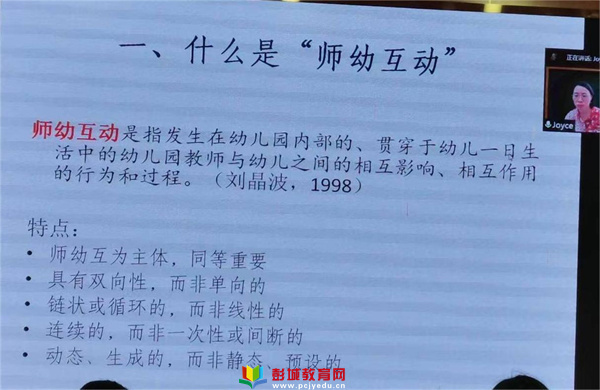 一、什么是“师幼互动”
正在讲话: Joy
Joyce
师幼互动是指发生在幼儿园内部的、贯穿于幼儿一日生
活中的幼儿园教师与幼儿之间的相互影响、相互作用
的行为和过程。（刘晶波，1998）
特点：
• 师幼互为主体，同等重要
• 具有双向性，而非单向的
• 链状或循环的，而非线性的
• 连续的，而非一次性或间断的
• 动态、生成的，而非静态、预设的
彭城教育网
www.pcjyedu.cn